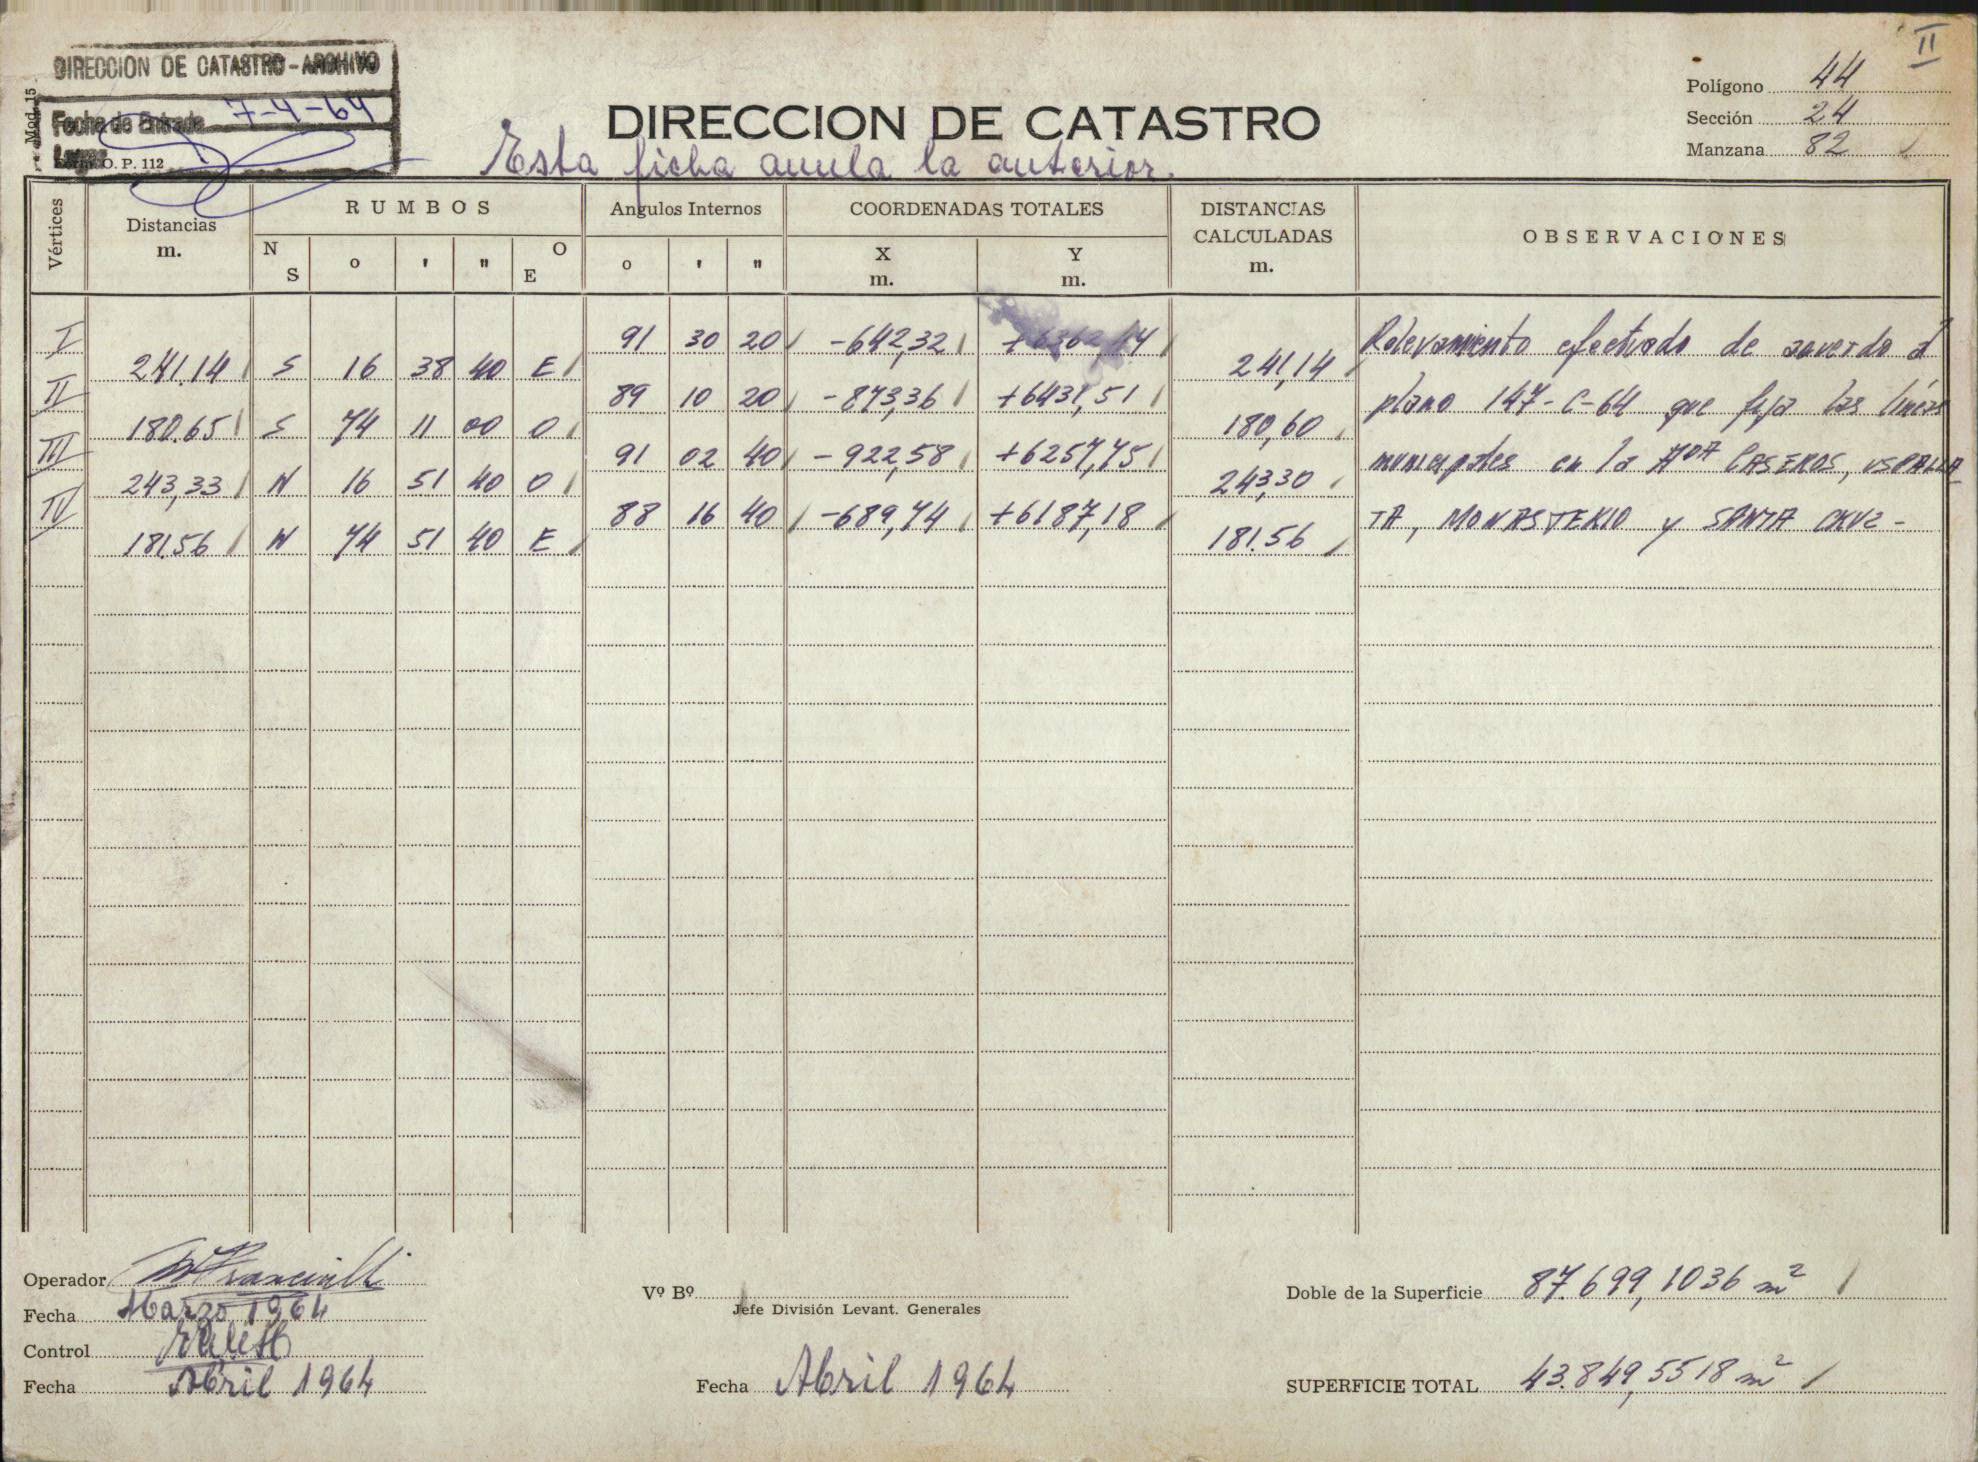 II
DIRECCION DE CATASTRO - ARCHIVO
Mod. 15
Fecha de Entrada 7-4-64
O. P. 112
DIRECCION DE CATASTRO
Esta ficha anula la anterior.
Polígono 44
Sección 24
Manzana 82
Vértices Distancias m. RUMBOS Angulos Internos COORDENADAS TOTALES DISTANCIAS CALCULADAS m. OBSERVACIONES
N S o ' " O E o ' " X m. Y m.
I 91 30 20 -642,32 +6362,14
241.14 S 16 38 40 E 241,14
II 89 10 20 -873,36 +6431,51
180.65 S 74 11 00 O 180,60
III 91 02 40 -922,58 +6257,75
243,33 N 16 51 40 O 243,30
IV 88 16 40 -689,74 +6187,18
181.56 N 74 51 40 E 181.56
Relevamiento efectuado de acuerdo a
plano 147-C-64 que fija las líneas
municipales en la AvdA CASEROS, USPALLA
TA, MONASTERIO y SANTA CRUZ -
Operador
Fecha Marzo 1964
Control
Fecha Abril 1964
Vº Bº
Jefe División Levant. Generales
Fecha Abril 1964
Doble de la Superficie 87.699,1036 m²
SUPERFICIE TOTAL 43.849,5518 m²